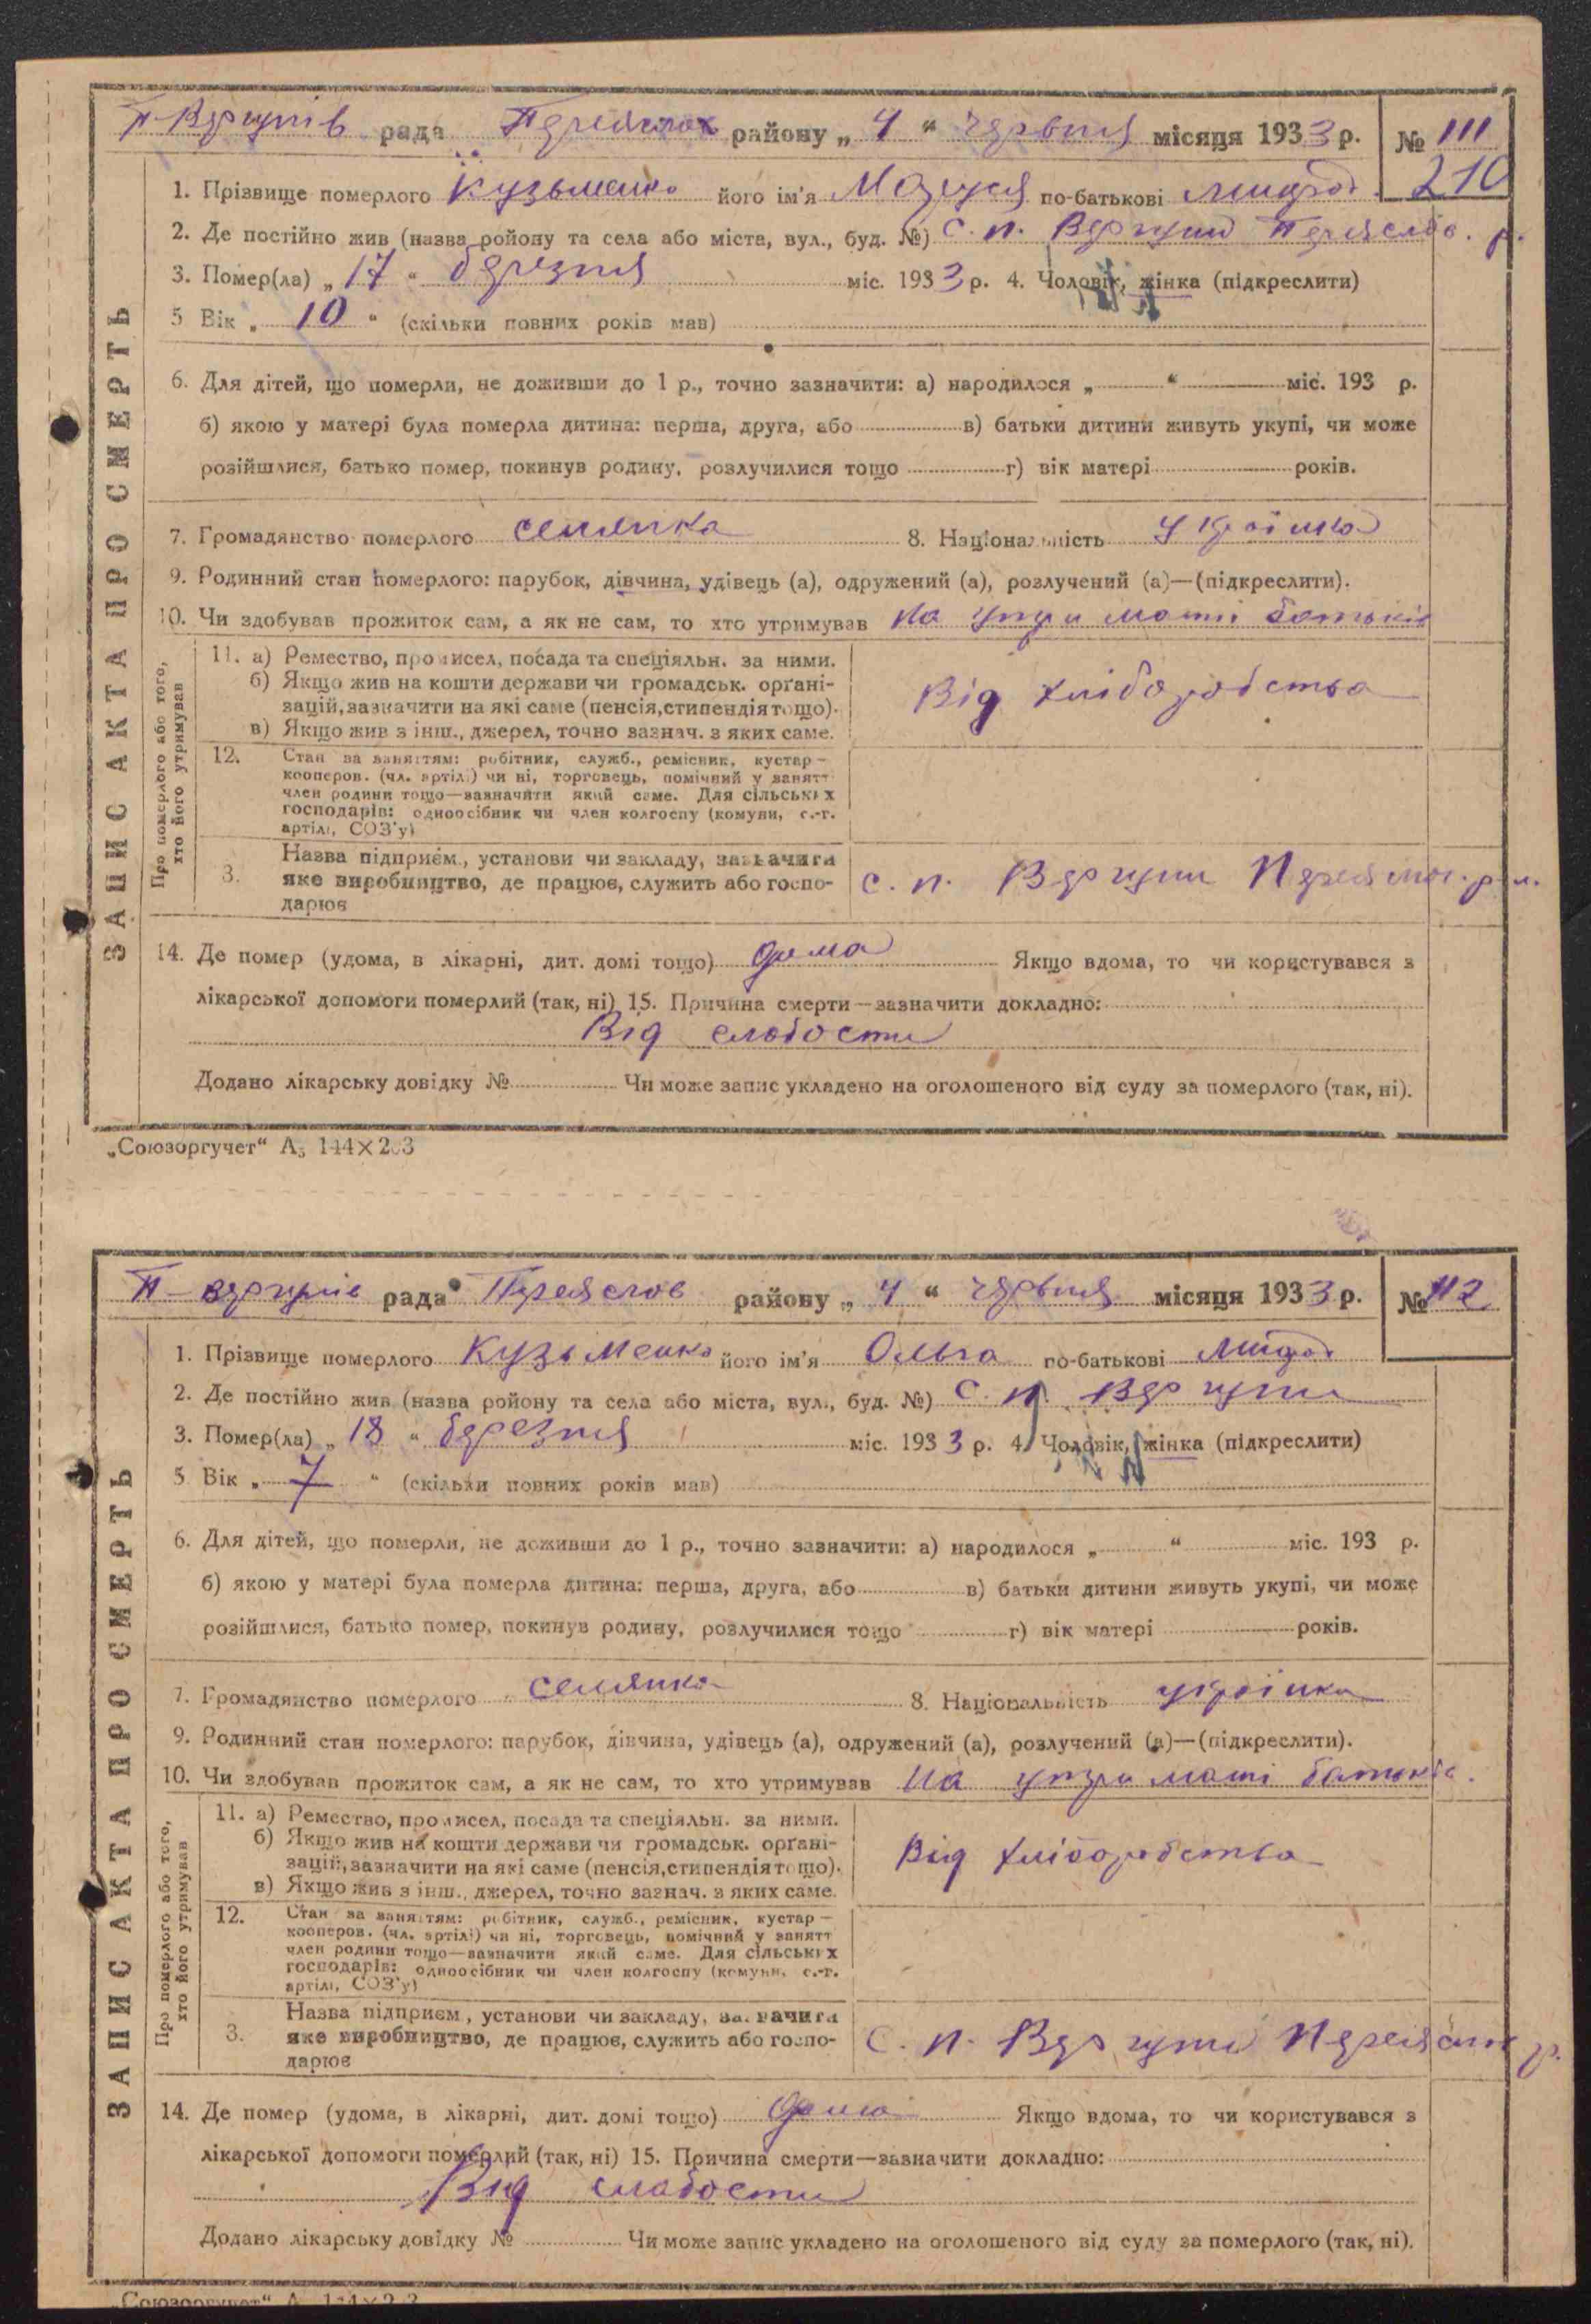 П-Вергунів рада Переяслов району „ 4 “ червня місяця 1933 р. № 111
210
1. Прізвище померлого Кузьменко його ім'я по-батькові
2. Де постійно жив (назва ройону та села або міста, вул., буд. №) с. п. Вергуни Переяслов. р.
3. Помер(ла) „ 17 “ березня міс. 1933 р. 4. Чоловік, жінка (підкреслити)
5 Вік „ 10 “ (скільки повних років мав)
6. Для дітей, що померли, не доживши до 1 р., точно зазначити: а) народилося „ “ міс. 193 р.
б) якою у матері була померла дитина: перша, друга, або в) батьки дитини живуть укупі, чи може
розійшлися, батько помер, покинув родину, розлучилися тощо г) вік матері років.
7. Громадянство померлого селянка 8. Національність українка
9. Родинний стан померлого: парубок, дівчина, удівець (а), одружений (а), розлучений (а)—(підкреслити).
10. Чи здобував прожиток сам, а як не сам, то хто утримував на утриманні батьків
11. а) Ремество, промисел, посада та спеціяльн. за ними.
б) Якщо жив на кошти держави чи громадськ. орґані-
зацій, зазначити на які саме (пенсія, стипендія тощо).
в) Якщо жив з інш., джерел, точно зазнач. з яких саме.
Від хліборобства
12. Стан за заняттям: робітник, служб., ремісник, кустар —
кооперов. (чл. артілі) чи ні, торговець, помічний у занятт
член родини тощо—зазначити який саме. Для сільських
господарів: одноосібник чи член колгоспу (комуни, с.-г.
артілі, СОЗ'у)
3. Назва підприєм., установи чи закладу, зазначити
яке виробництво, де працює, служить або госпо-
дарює
с. п. Вергуни Переяслов. р-н.
14. Де помер (удома, в лікарні, дит. домі тощо) дома Якщо вдома, то чи користувався з
лікарської допомоги померлий (так, ні) 15. Причина смерти—зазначити докладно:
Від слабости
Додано лікарську довідку № Чи може запис укладено на оголошеного від суду за померлого (так, ні).
ЗАПИС АКТА ПРО СМЕРТЬ
Про померлого або того,
хто його утримував
„Союзоргучет“ А5 144×203
П-Вергунів рада Переяслов району „ 4 “ червня місяця 1933 р. № 112
1. Прізвище померлого Кузьменко його ім'я Ольга по-батькові
2. Де постійно жив (назва ройону та села або міста, вул., буд. №) с. п. Вергуни
3. Помер(ла) „ 18 “ березня міс. 1933 р. 4. Чоловік, жінка (підкреслити)
5 Вік „ 7 “ (скільки повних років мав)
6. Для дітей, що померли, не доживши до 1 р., точно зазначити: а) народилося „ “ міс. 193 р.
б) якою у матері була померла дитина: перша, друга, або в) батьки дитини живуть укупі, чи може
розійшлися, батько помер, покинув родину, розлучилися тощо г) вік матері років.
7. Громадянство померлого селянка 8. Національність українка
9. Родинний стан померлого: парубок, дівчина, удівець (а), одружений (а), розлучений (а)—(підкреслити).
10. Чи здобував прожиток сам, а як не сам, то хто утримував на утриманні батьків.
11. а) Ремество, промисел, посада та спеціяльн. за ними.
б) Якщо жив на кошти держави чи громадськ. орґані-
зацій, зазначити на які саме (пенсія, стипендія тощо).
в) Якщо жив з інш., джерел, точно зазнач. з яких саме.
Від хліборобства
12. Стан за заняттям: робітник, служб., ремісник, кустар —
кооперов. (чл. артілі) чи ні, торговець, помічний у занятт
член родини тощо—зазначити який саме. Для сільських
господарів: одноосібник чи член колгоспу (комуни, с.-г.
артілі, СОЗ'у)
3. Назва підприєм., установи чи закладу, зазначити
яке виробництво, де працює, служить або госпо-
дарює
с. п. Вергуни Переяслов р.
14. Де помер (удома, в лікарні, дит. домі тощо) дома Якщо вдома, то чи користувався з
лікарської допомоги померлий (так, ні) 15. Причина смерти—зазначити докладно:
Від слабости
Додано лікарську довідку № Чи може запис укладено на оголошеного від суду за померлого (так, ні).
ЗАПИС АКТА ПРО СМЕРТЬ
Про померлого або того,
хто його утримував